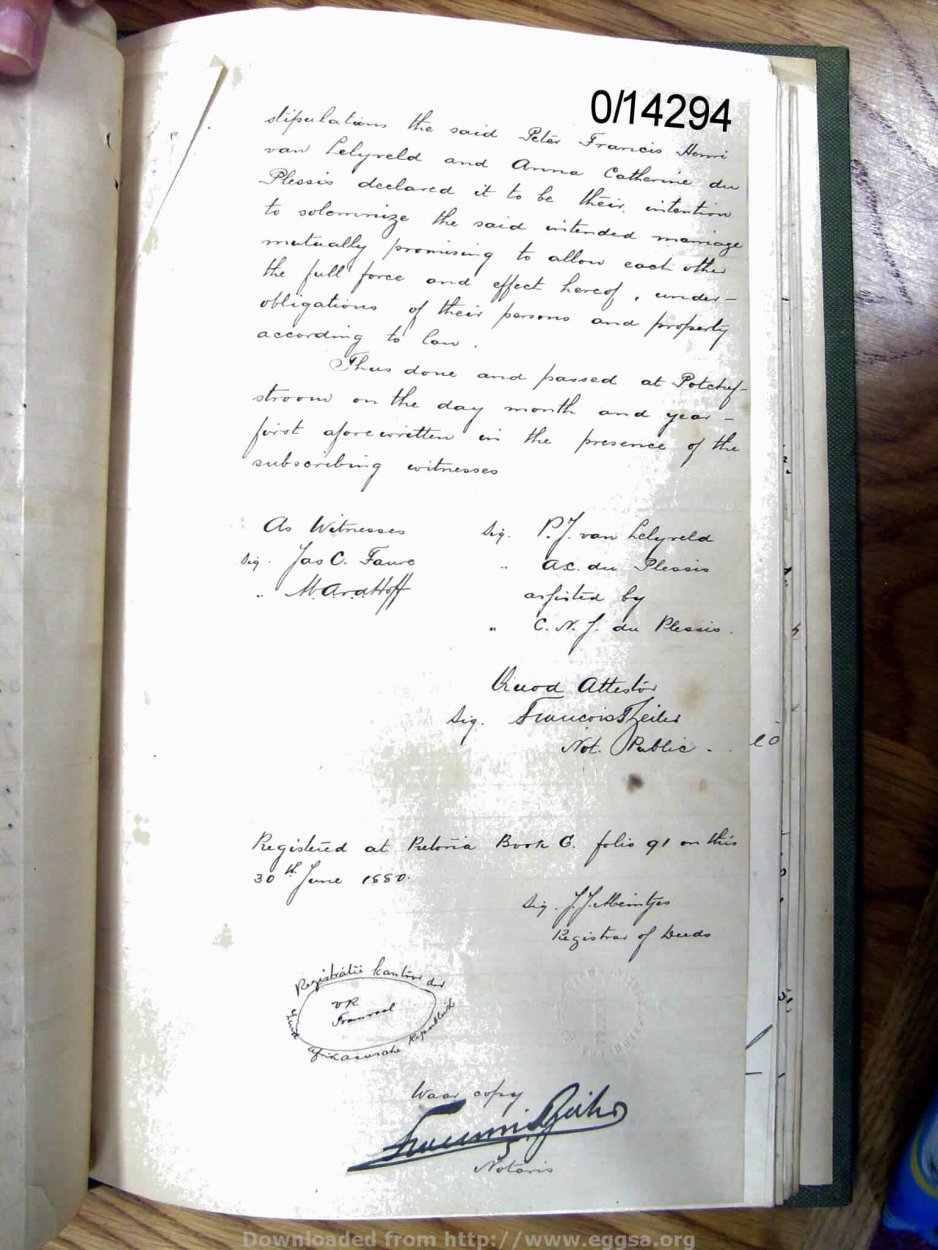 0/14294
stipulations the said Peter Francis Henri
van Lelyveld and Anna Catherine du
Plessis declared it to be their intention
to solomnize the said intended marriage
mutually promising to allow each other
the full force and effect hereof, under-
obligations of their persons and property
according to law.
Thus done and passed at Potchef-
stroom on the day month and year -
first aforewritten in the presence of the
subscribing witnesses
As Witnesses
Sig. Jas C. Faure
" M. Ardthoff
Sig. P.J. van Lelyveld
" A.C. du Plessis
assisted by
" C.N.J. du Plessis.
Quod Attestor
Sig. Francois Zeiler
Not. Public.
Registered at Pretoria Book G. folio 91 on this
30th June 1880.
Sig. J.J. Meintjes
Registrar of Deeds
Registratie kantoor der
Zuid Afrikaansche Republiek
VR
Transvaal
Waar copy
Francois Zeiler
Notaris
Downloaded from http://www.eggsa.org